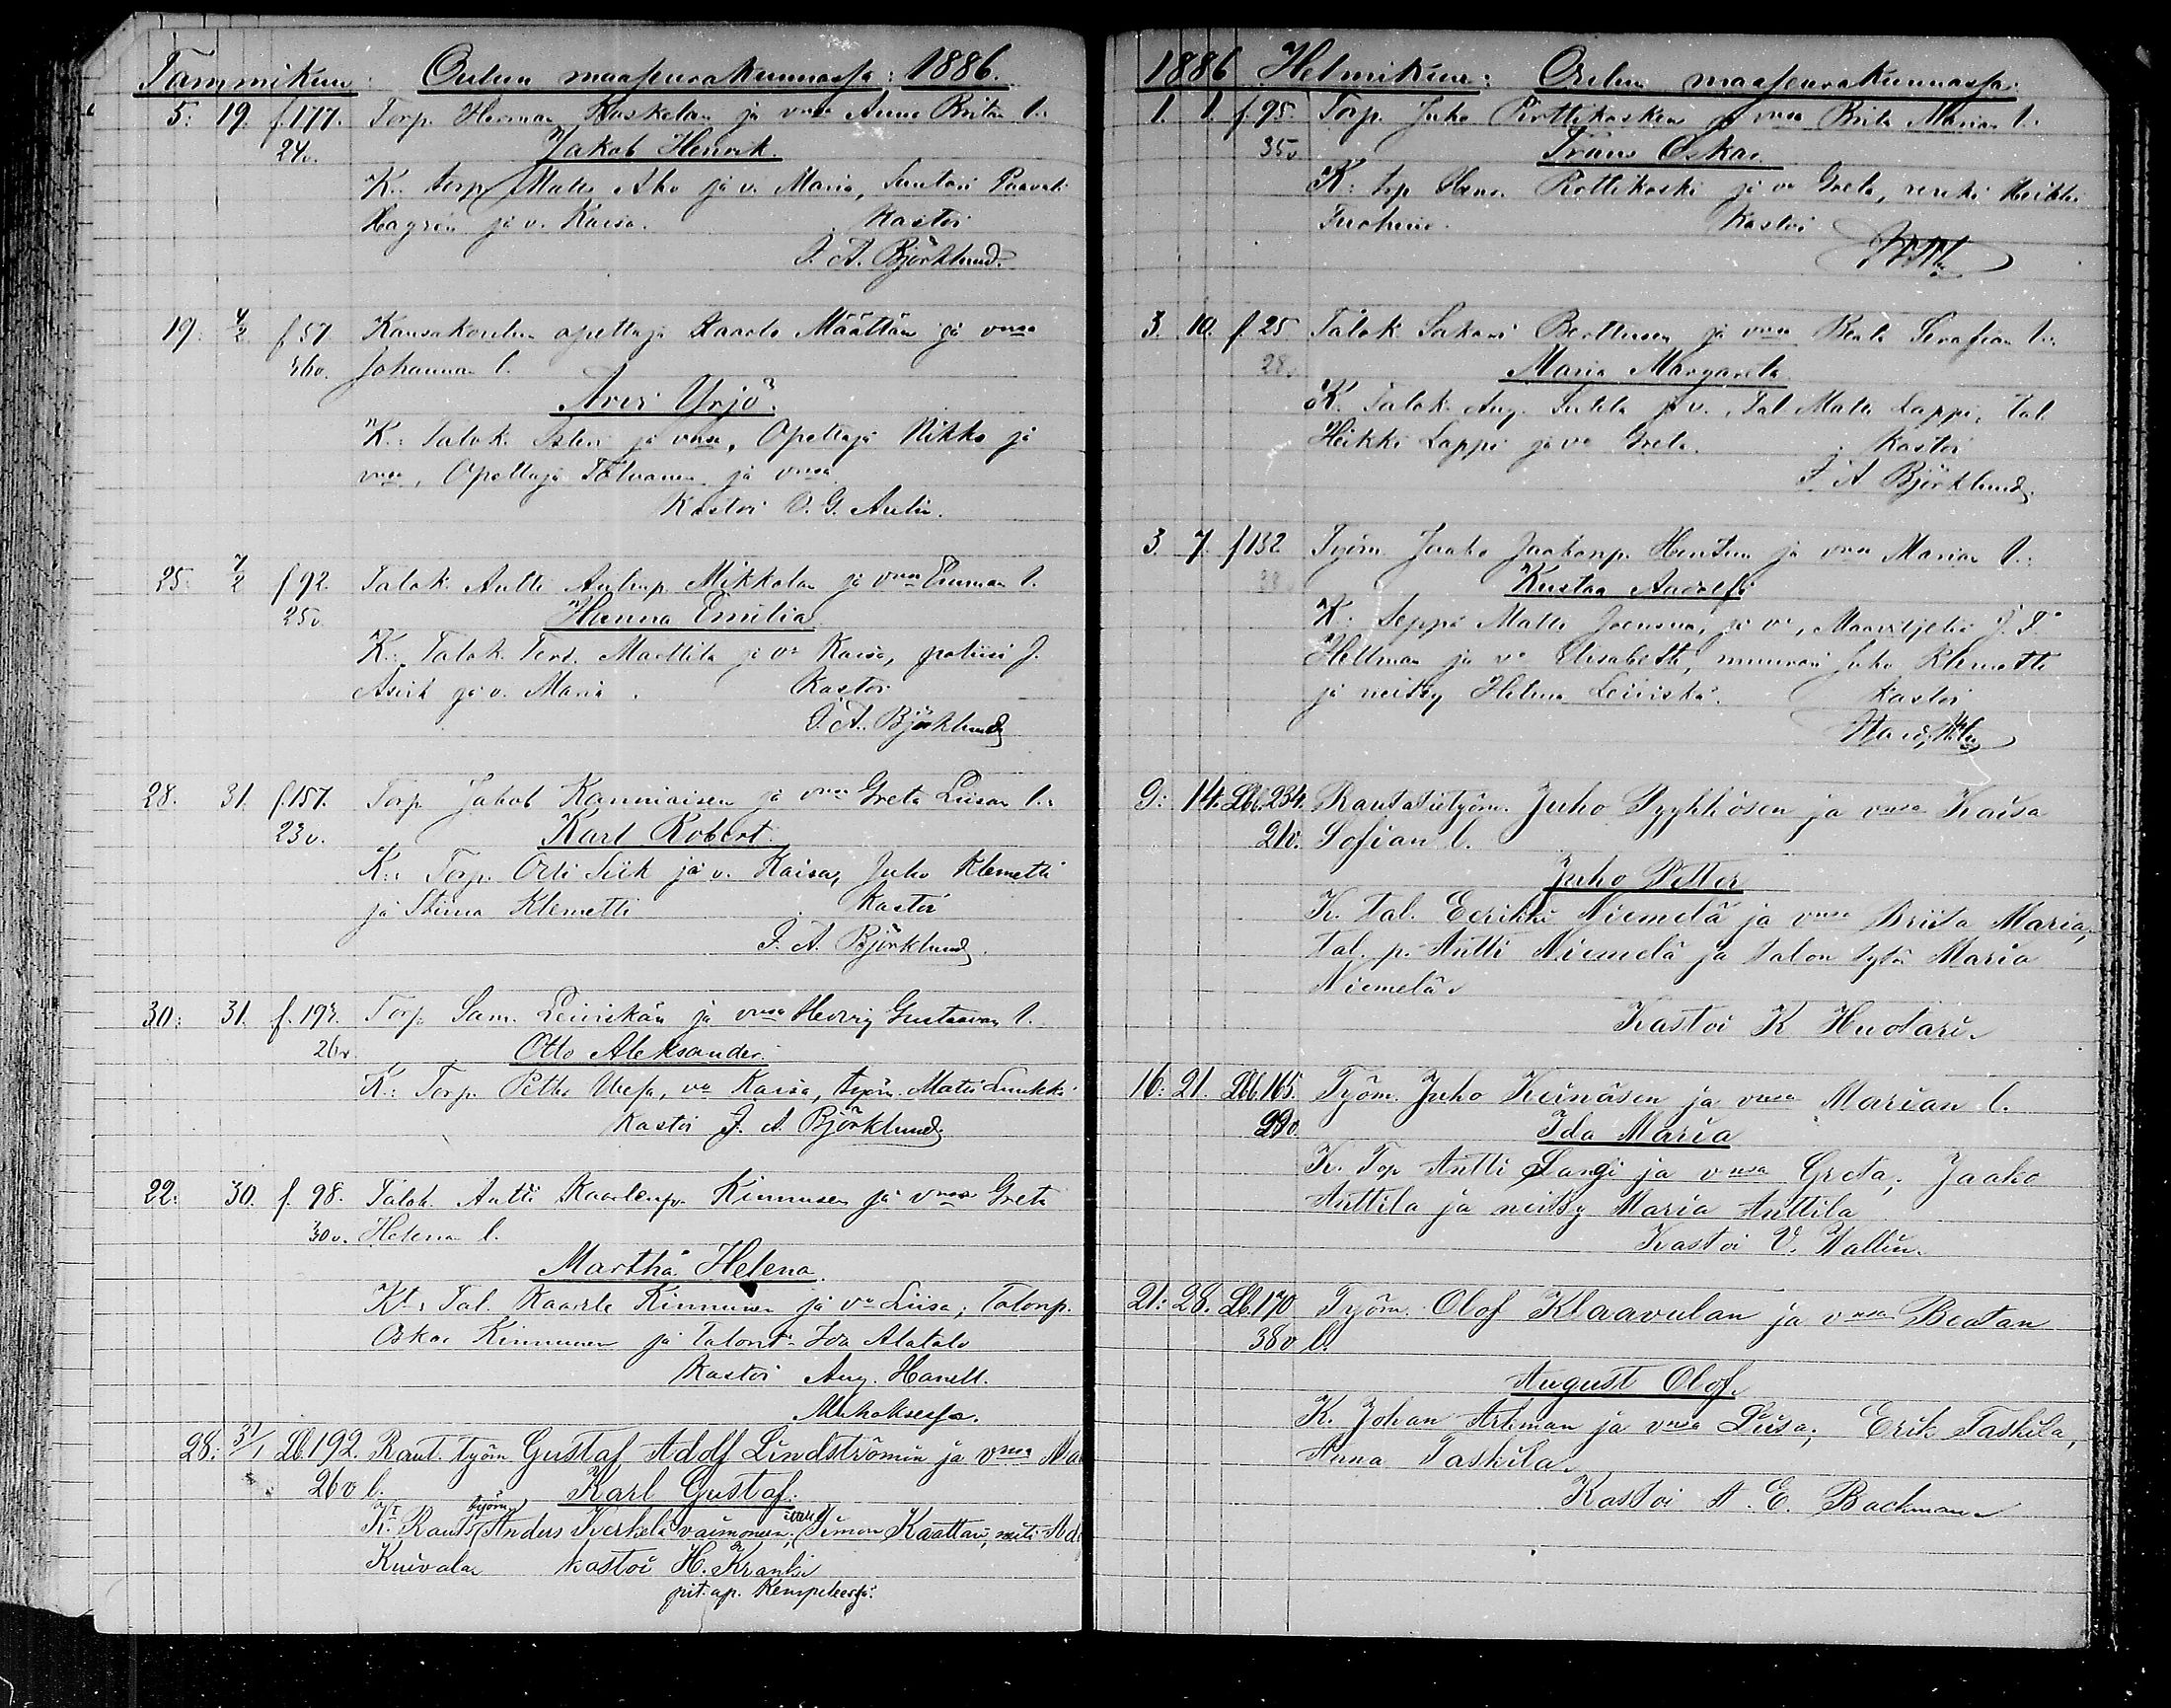 Tammikuu: Oulun maaseurakunnassa: 1886.
5: 19. f.177. Torp. Herman Koskelan ja vnsa Anna Britan l.
24v. Jakob Henrik.
K: torp Matts Aho ja v. Maria, Suutari Paavali
Hagrén ja v. Kaisa. Kastoi
J. A. Björklund.
19: 4/2 f.57 Kansakoulun opettaja Kaarlo Määttän ja vnsa
Johannan l.
Arvi Yrjö.
K: Talok. ja vnsa, Opettaja Nikko ja
vnsa, Opettaja Tolvanen ja vnsa
Kastoi O. G. Aulin.
25: 7/2 f 92. Talok. Antti Antinp. Mikkolan ja vnsa Emman l.
25v. Hanna Emilia
K: Talok. Ferd. Marttila ja va Kaisa, J.
Asiik ja v. Maria. Kastoi
J. A. Björklund
28. 31. f.157. Torp Jakob Kanniaisen ja vnsa Greta Liisan l.
23v. Karl Robert.
K: Torp. Siik ja v. Kaisa, Juho Klemetti
ja Stiina Klemetti Kastoi
J. A. Björklund.
30: 31. f. 194. Torp Sam. Leinikän ja vnsa Hedvig Gustaavan l.
26v. Otto Aleksander.
K: Torp. Petter va Kaisa, työm. Matti Luukki
Kastoi J. A. Björklund
22: 30. f. 98. Talok. Antti Kaarlenp. Kinnusen ja vnsa Greta
30v. Helenan l.
Martha Helena.
Kt: Tal. Kaarle Kinnunen ja va Liisa, Talonp.
Oskar Kinnunen ja Talont. Ida Alatalo
Kastoi Aug. Hanell.
Muhoksessa.
28: 31/1 Lb.192. Raut. työm Gustaf Adolf Lindströmin ja vnsa
26v l. Karl Gustaf.
Kt. Raut. työm. Anders Kerkelä vaimoneen, Simon Kaattari, neiti
Kuivala kastoi H. Krank
pit. ap. Kempeleessä.
1886 Helmikuu: Oulun maaseurakunnassa.
1. 1 f.95. Torp. Juho Rottikosken ja vnsa Brita Marian l.
35v Frans Oskar.
K: torp Rottikoski ja va Greta, renki Heikki
Kastoi
3. 10. f.25 Talok. Sakari Perttusen ja vnsa Beata Serafian l.
28. Maria Margareta
K. Talok. Aug. ja v., Tal. Matti Lappi, Tal.
Heikki Lappi ja va Greta. Kastoi
J. A. Björklund
3. 7. f132 Työm. Jaako Jaakonp. Hentun ja vnsa Marian l.
Kustaa Aadolf
K: Seppä Matti Joensuu, ja va, Maanviljeliä J. F.
Hellman ja va Elisabeth, muurari Juho Klemetti
ja neitsy Helena Leiniskä. Kastoi
9: 14. Lb.234. Rautatietyöm. Juho Pyykkösen ja vnsa Kaisa
21v. Sofian l.
Juho Petter
K. Tal. Eerikki Niemelä ja vnsa Briita Maria,
Tal. p. Antti Niemelä ja talon tytö Maria
Niemelä
Kastoi K Huotari
16: 21. Lb.165. Työm. Juho Keinäsen ja vnsa Marian l.
29v. Ida Maria
K. Top Antti Sangi ja vnsa Greta, Jaako
Anttila ja neitsy Maria Anttila
Kastoi V. Wallin.
21: 28. Lb.170 Työm. Olof Klaavulan ja vnsa Beatan
38v l.
August Olof.
K. Johan Arkman ja vnsa Liisa, Erik Taskila,
Anna Taskila
Kastoi A. E. Backman